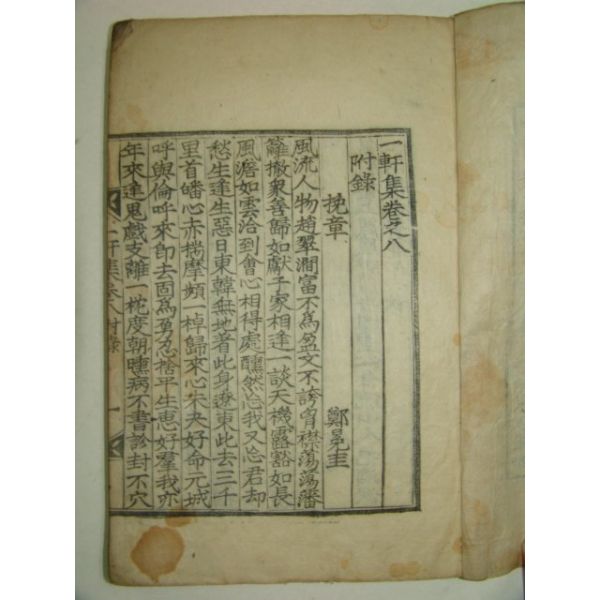 一軒集卷之八
附錄
挽章 鄭冕圭
風流人物趙翠澗富不為盈文不誇胷襟蕩蕩藩
籬撤衆善歸如獻子家相逢一談天機露豁如長
風澹如雲洽到會心相得處醺然忘我又忘君却
愁生逢生惡日東韓無地著此身遼東此去三千
里首皤心赤揣摩頻一棹歸來心未夬好命元城
呼與倫呼來印去固為勇忍捨平生惠好羣我亦
年來逢鬼戲支離一枕度朝曛病不書診封不穴
一軒集 卷八 附錄 一